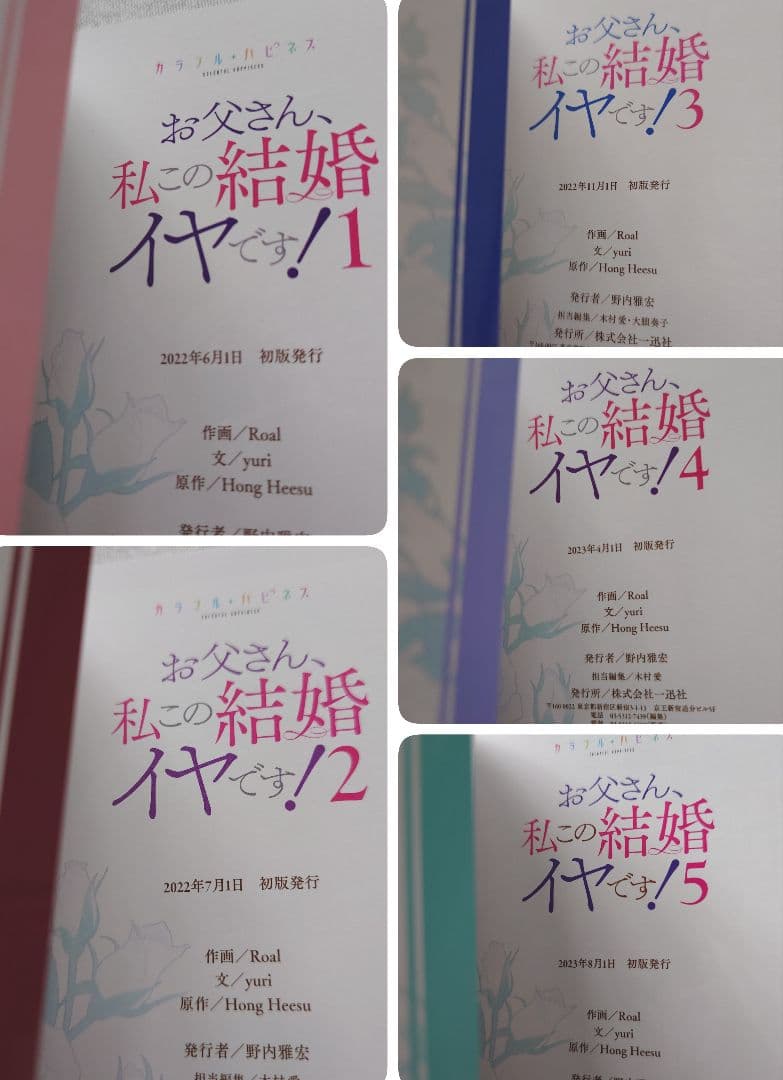 カラフル・ハピネス
COLORFUL HAPPINESS
お父さん、
私この結婚
イヤです!1
2022年6月1日 初版発行
作画/Roal
文/yuri
原作/Hong Heesu
発行者/野内雅宏
カラフル・ハピネス
COLORFUL HAPPINESS
お父さん、
私この結婚
イヤです!2
2022年7月1日 初版発行
作画/Roal
文/yuri
原作/Hong Heesu
発行者/野内雅宏
担当編集/木村愛
お父さん、
私この結婚
イヤです!3
2022年11月1日 初版発行
作画/Roal
文/yuri
原作/Hong Heesu
発行者/野内雅宏
担当編集/木村愛・大舘奏子
発行所/株式会社一迅社
お父さん、
私この結婚
イヤです!4
2023年4月1日 初版発行
作画/Roal
文/yuri
原作/Hong Heesu
発行者/野内雅宏
担当編集/木村愛
発行所/株式会社一迅社
〒160-0022 東京都新宿区新宿3-1-13 京王新宿追分ビル5F
電話 03-5312-7439(編集)
カラフル・ハピネス
COLORFUL HAPPINESS
お父さん、
私この結婚
イヤです!5
2023年8月1日 初版発行
作画/Roal
文/yuri
原作/Hong Heesu